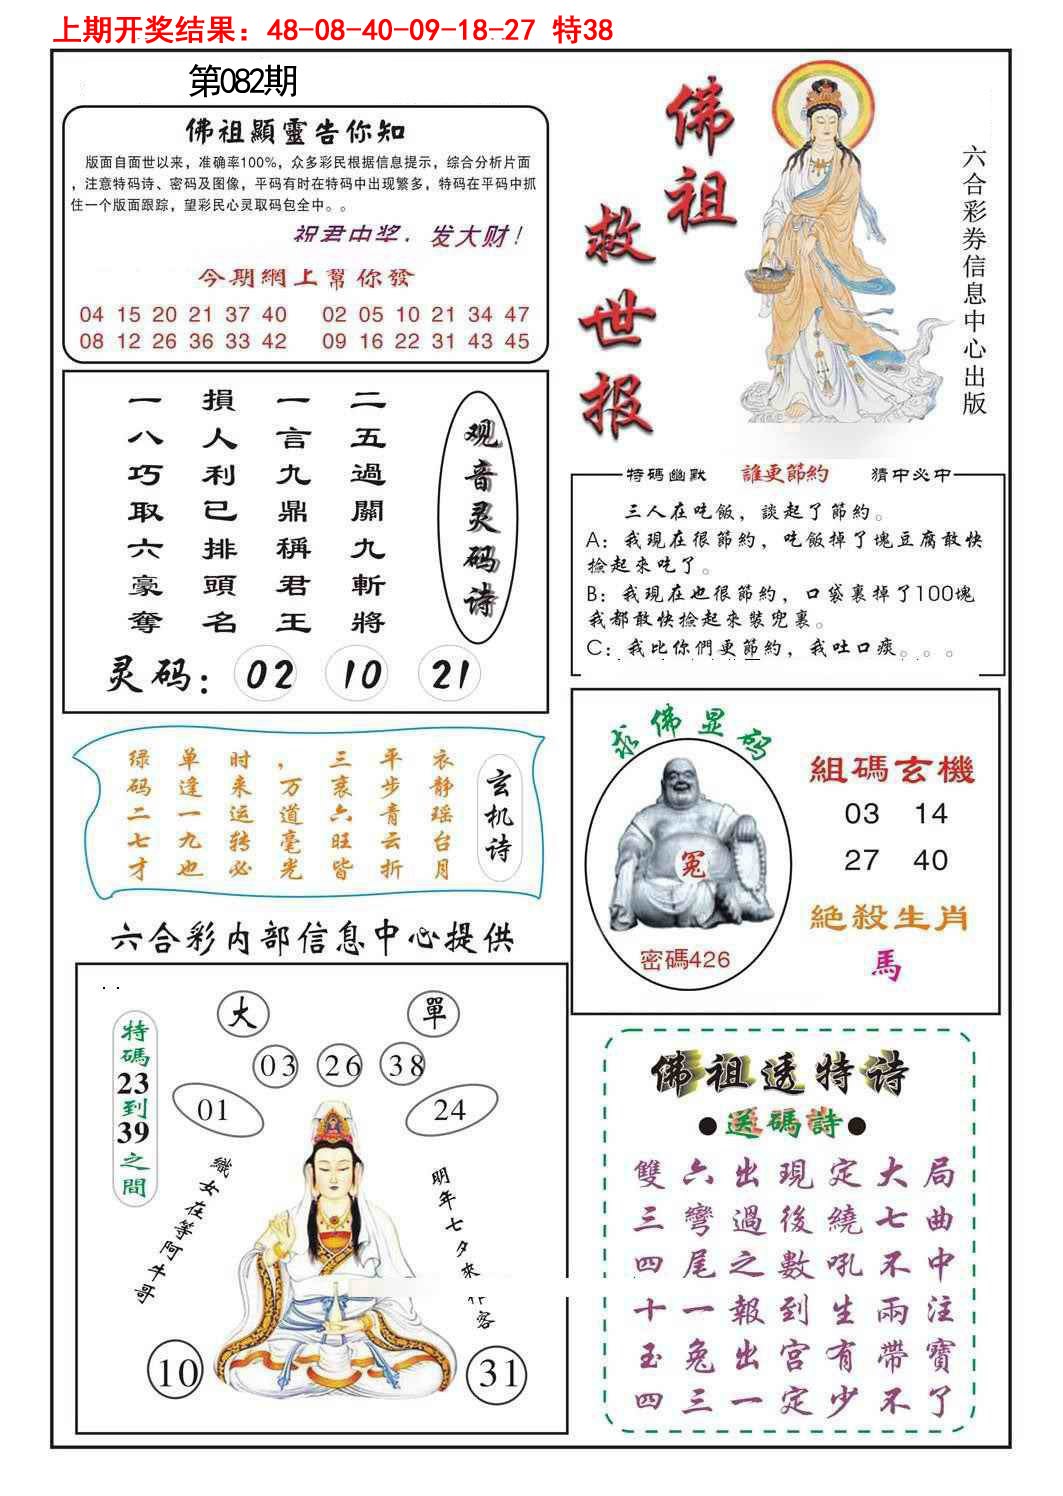 上期开奖结果：48-08-40-09-18-27 特38
第082期
佛祖顯靈告你知
版面自面世以来，准确率100%，众多彩民根据信息提示，综合分析片面
，注意特码诗、密码及图像，平码有时在特码中出现繁多，特码在平码中抓
住一个版面跟踪，望彩民心灵取码包全中。。
祝君中奖，发大财！
今期網上幫你發
04 15 20 21 37 40 02 05 10 21 34 47
08 12 26 36 33 42 09 16 22 31 43 45
佛祖
救世报
六合彩券信息中心出版
观音灵码诗
二五過關九斬將
一言九鼎稱君王
損人利己排頭名
一八巧取六豪奪
灵码：02 10 21
特碼幽默 誰更節約 猜中必中
三人在吃飯，談起了節約。
A：我現在很節約，吃飯掉了塊豆腐敢快
撿起來吃了。
B：我現在也很節約，口袋裏掉了100塊
我都敢快撿起來裝兜裏。
C：我比你們更節約，我吐口痰。。。
玄机诗
衣静瑶台月
平步青云折
三衰六旺皆
，万道毫光
时来运转必
单逢一九也
绿码二七才
求佛显码
冤
密碼426
組碼玄機
03 14
27 40
絕殺生肖
馬
六合彩内部信息中心提供
大 單
03 26 38
01 24
特碼23到39之間
織女在等阿牛哥
明年七夕來作客
10 31
佛祖透特诗
●送碼詩●
雙六出現定大局
三彎過後繞七曲
四尾之數吼不中
十一報到生兩注
玉兔出宮有帶寶
四三一定少不了